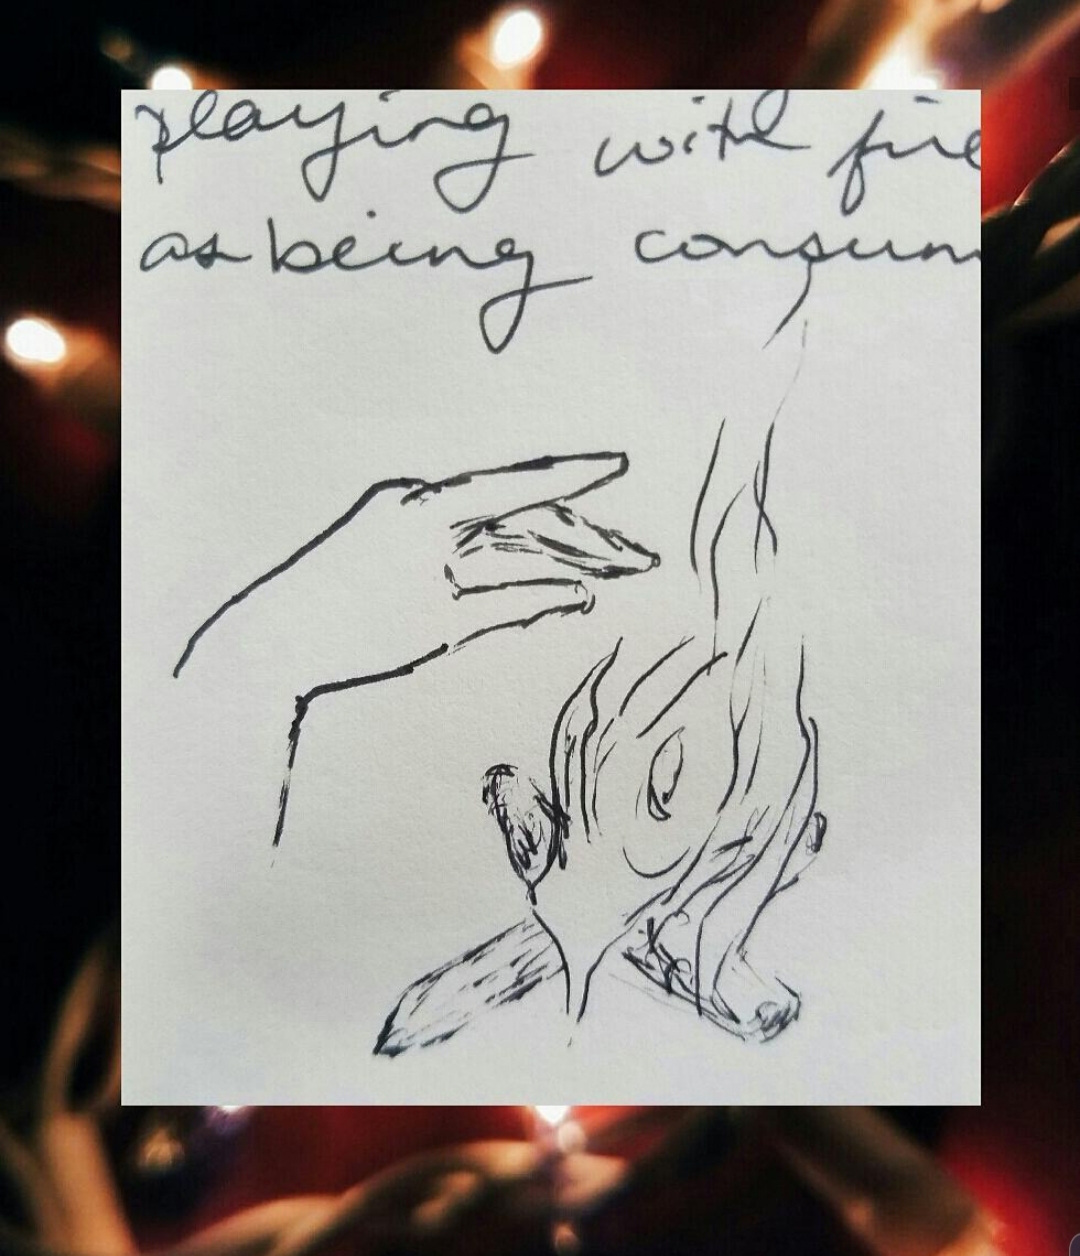 playing with fire
as being consum